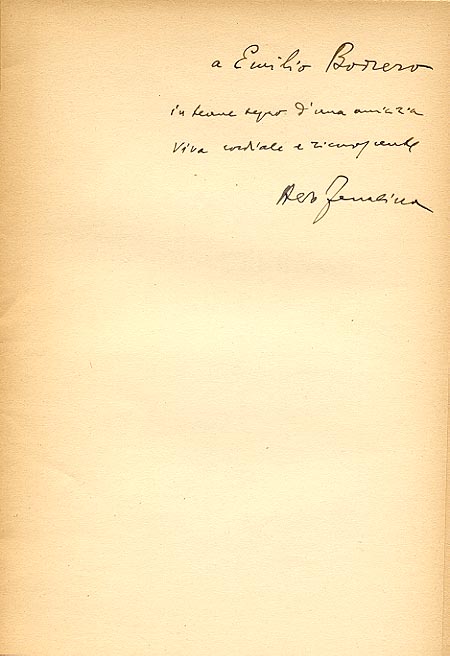 a Emilio Bodrero
in tenue segno d'una amicizia
viva cordiale e riconoscente
Aldo